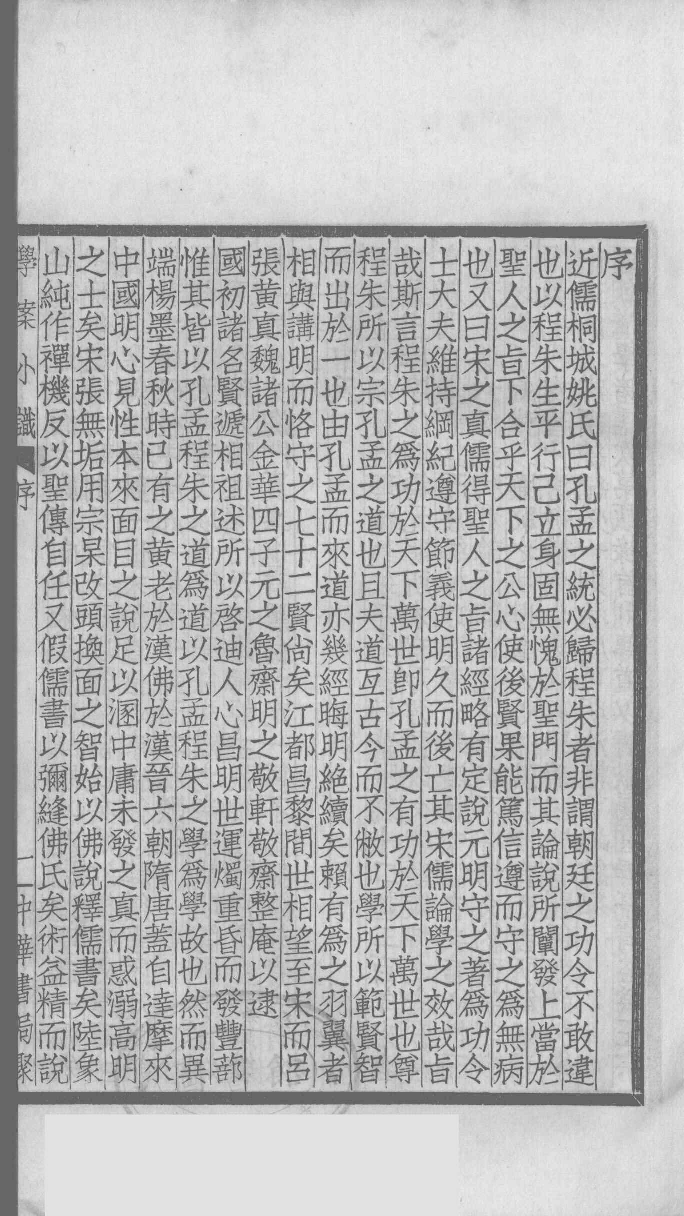 序
近儒桐城姚氏曰孔孟之統必歸程朱者非謂朝廷之功令不敢違
也以程朱生平行己立身固無愧於聖門而其論說所闡發上當於
聖人之旨下合乎天下之公心使後賢果能篤信遵而守之爲無病
也又曰宋之真儒得聖人之旨諸經略有定說元明守之著爲功令
士大夫維持綱紀遵守節義使明久而後亡其宋儒論學之效哉旨
哉斯言程朱之爲功於天下萬世卽孔孟之有功於天下萬世也尊
程朱所以宗孔孟之道也且夫道亙古今而不敝也學所以範賢智
而出於一也由孔孟而來道亦幾經晦明絕續矣賴有爲之羽翼者
相與講明而恪守之七十二賢尙矣江都昌黎間世相望至宋而呂
張黃真魏諸公金華四子元之魯齋明之敬軒敬齋整庵以逮
國初諸名賢遞相祖述所以啓迪人心昌明世運燭重昏而發豐蔀
惟其皆以孔孟程朱之道爲道以孔孟程朱之學爲學故也然而異
端楊墨春秋時已有之黃老於漢佛於漢晉六朝隋唐蓋自達摩來
中國明心見性本來面目之說足以溷中庸未發之真而惑溺高明
之士矣宋張無垢用宗杲改頭換面之智始以佛說釋儒書矣陸象
山純作禪機反以聖傳自任又假儒書以彌縫佛氏矣術益精而說
學案小識 序 一 中華書局聚